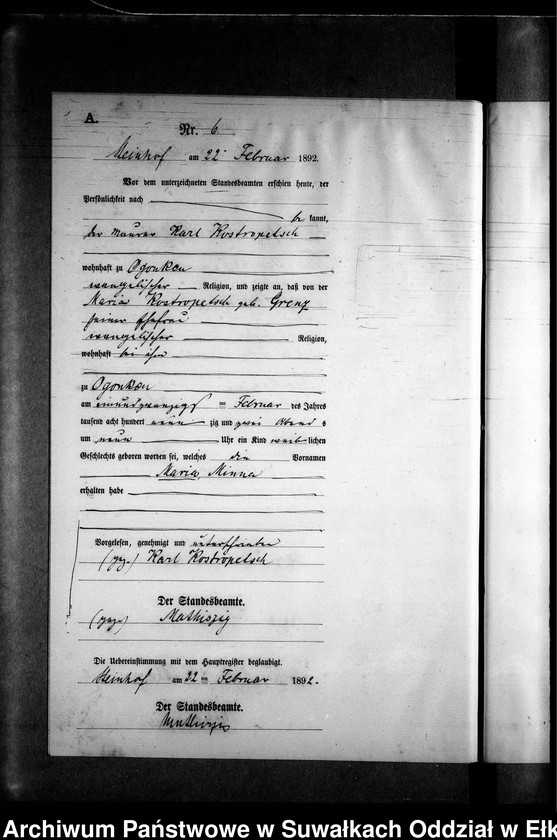 A.
Nr. 6
Steinhof am 22 Februar 1892.
Vor dem unterzeichneten Standesbeamten erschien heute, der
Persönlichkeit nach
be kannt,
der Maurer Karl Kostropetsch
wohnhaft zu Ogonken
evangelischer Religion, und zeigte an, daß von der
Maria Kostropetsch geb. Grenz
seiner Ehefrau
evangelischer Religion,
wohnhaft bei ihm
zu Ogonken
am einundzwanzigs ten Februar des Jahres
tausend acht hundert neun zig und zwei Abend s
um neun Uhr ein Kind weib lichen
Geschlechts geboren worden sei, welches die Vornamen
Maria, Minna
erhalten habe
Vorgelesen, genehmigt und unterschrieben
(gez.) Karl Kostropetsch
Der Standesbeamte.
(gez.) Mathiszig
Die Uebereinstimmung mit dem Hauptregister beglaubigt.
Steinhof am 22 ten Februar 1892.
Der Standesbeamte.
Archiwum Państwowe w Suwałkach Oddział w Ełk